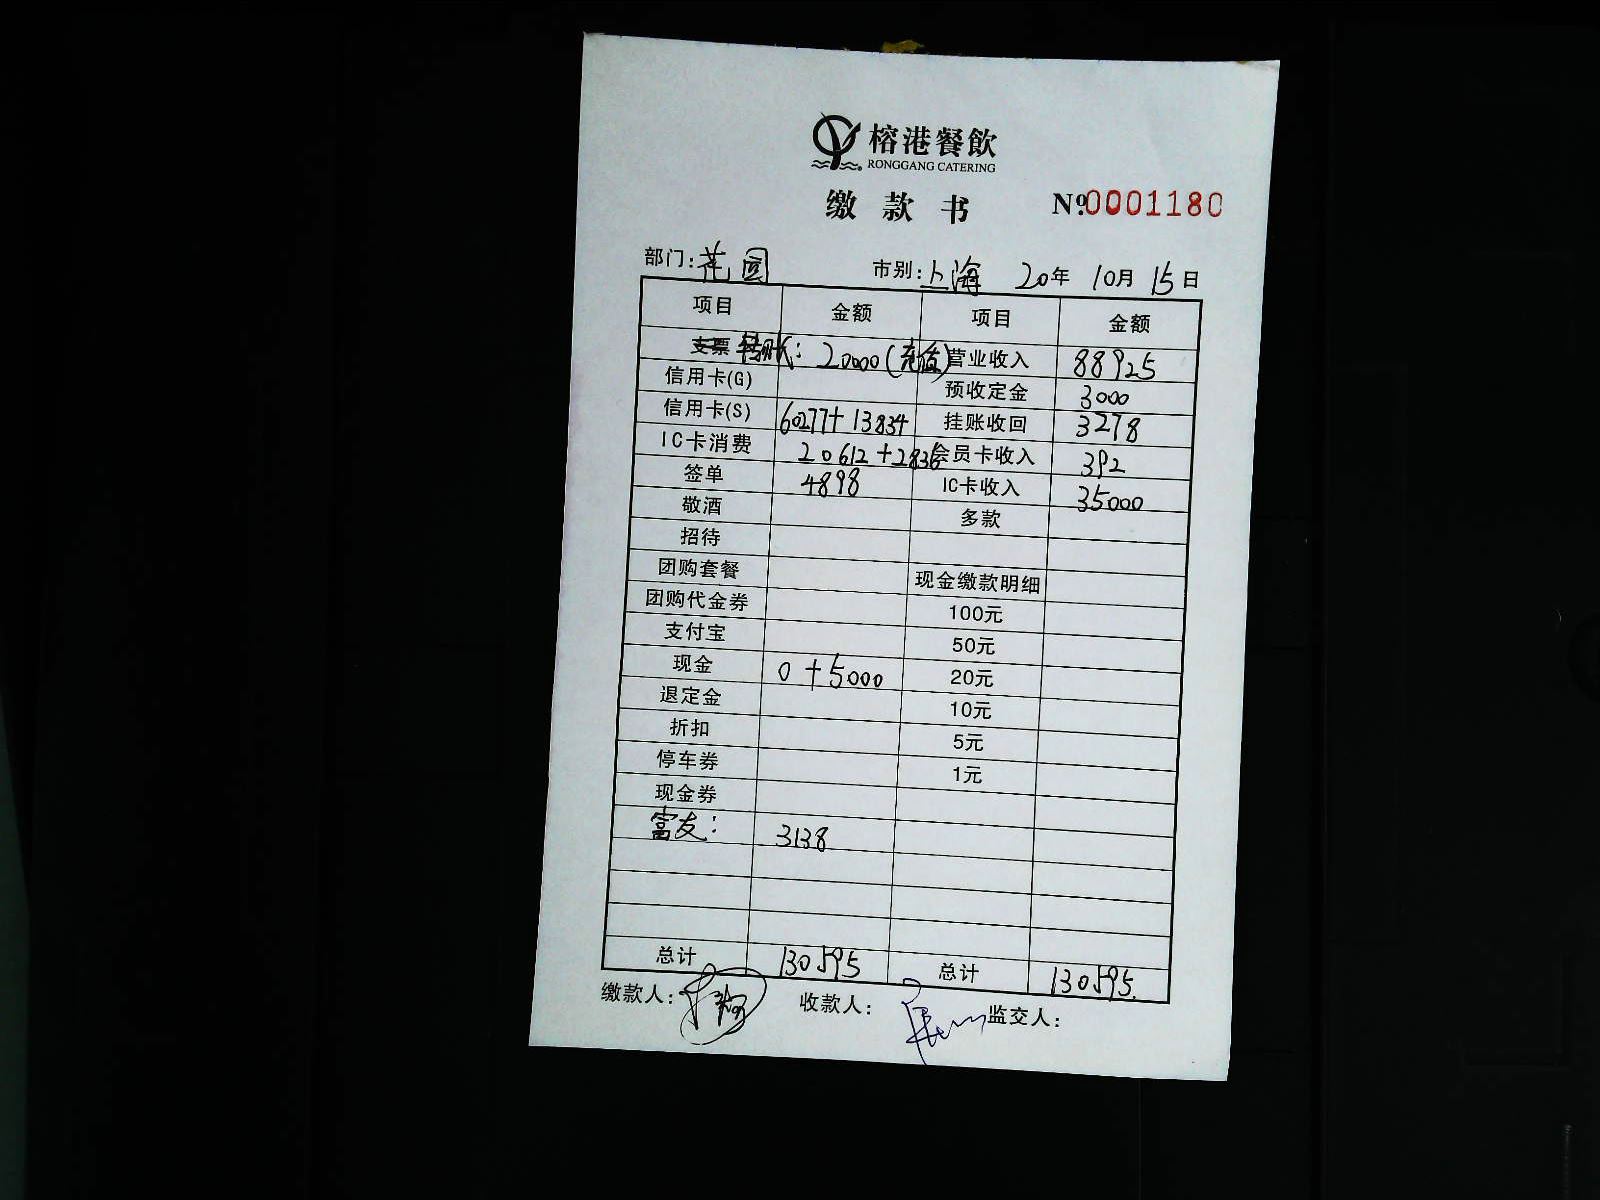 榕港餐飲
RONGGANG CATERING
缴款书 №0001180
部门:花园 市别:上海 20年 10月 15日
项目 金额 项目 金额
支票 转账: 20000(充值) 营业收入 88925
信用卡(G) 预收定金 3000
信用卡(S) 60277+13834 挂账收回 3278
IC卡消费 20612+2836 会员卡收入 392
签单 4898 IC卡收入 35000
敬酒 多款
招待
团购套餐 现金缴款明细
团购代金券 100元
支付宝 50元
现金 0+5000 20元
退定金 10元
折扣 5元
停车券 1元
现金券
富友: 3138
总计 130595 总计 130595.
缴款人: 收款人: 监交人: